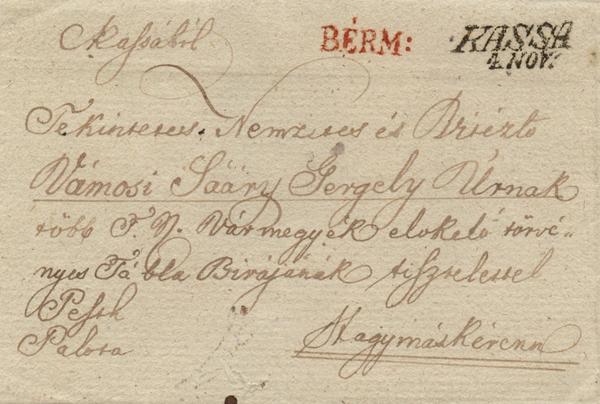 Kassából
BÉRM:
KASSA
4. NOV.
Tekintetes. Nemzetes és Vitézlő
Vámosi Sááry Gergely Úrnak
több T. N. Vármegyék elökelő törvé-
nyes Tábla Birájának tisztelettel
Pesth
Palota
Nagymáskérenn